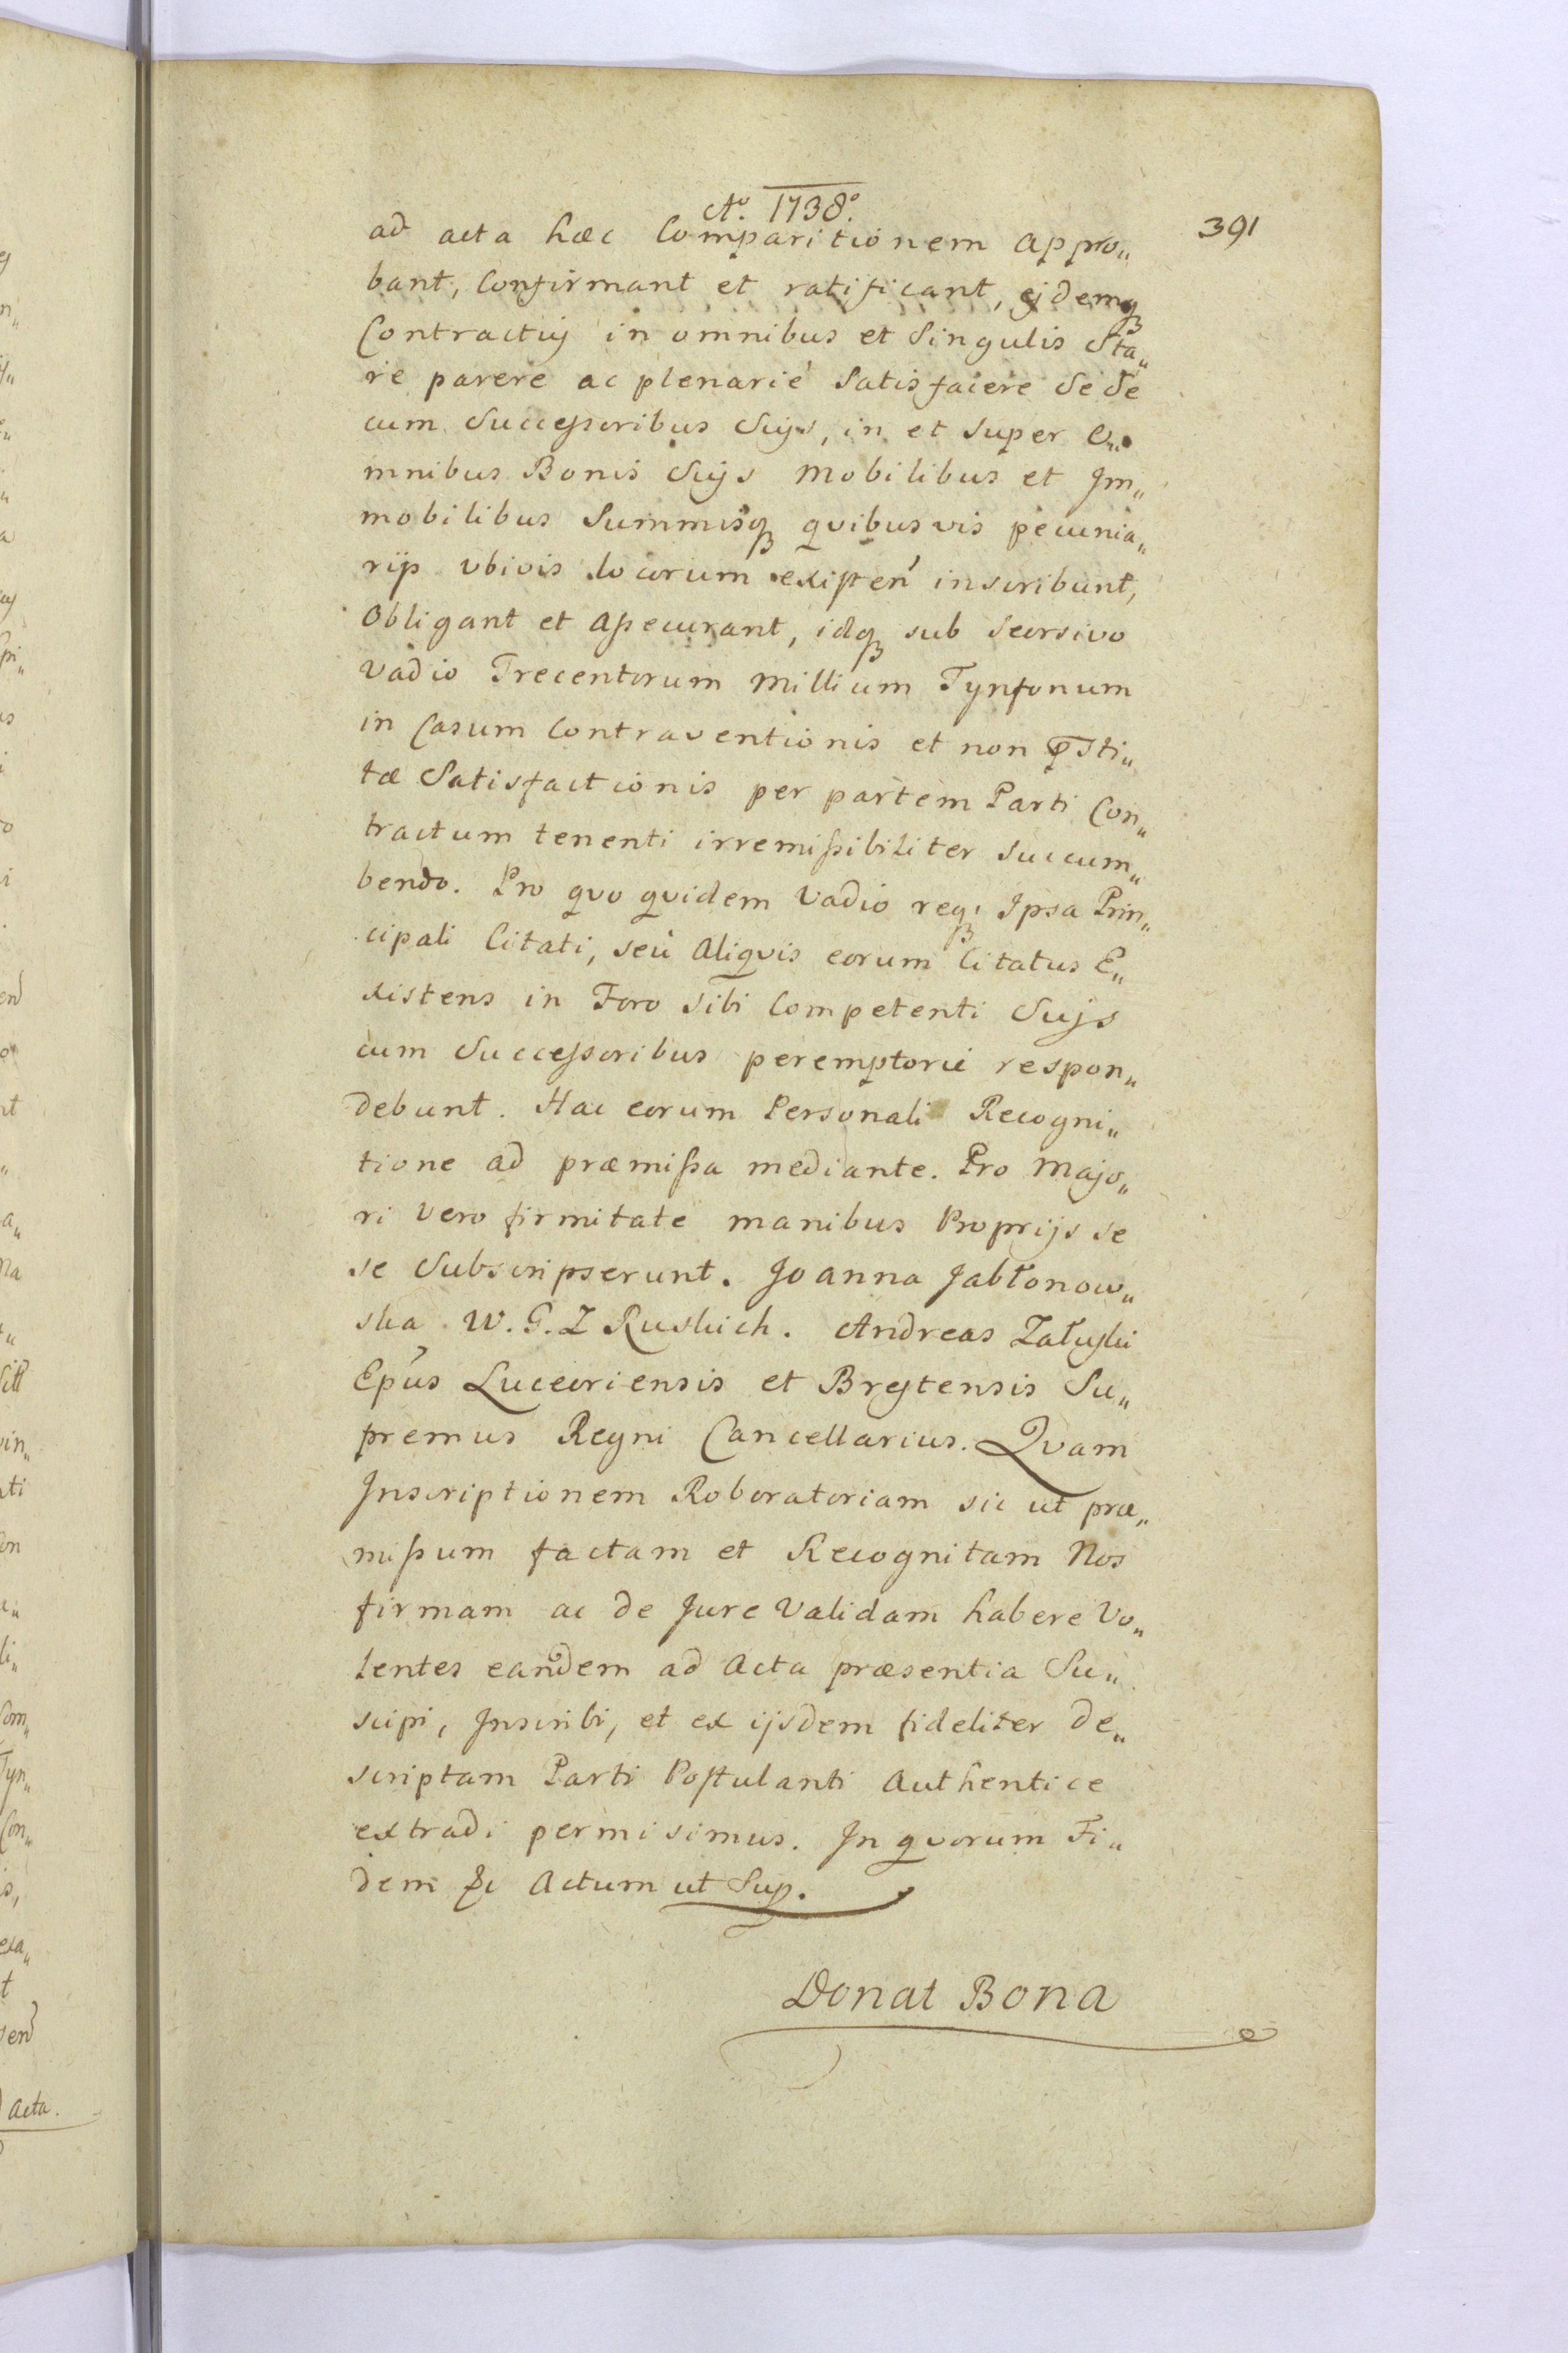 Aº. 1738º.
391
ad acta hæc Comparitionem appro„
bant, Confirmant et ratificant, ejdemq
Contractuj in omnibus et Singulis Sta„
re parere ac plenarie Satisfacere Se Se
cum Successoribus Suys, in et Super O„
mnibus Bonis Suys Mobilibus et Im„
mobilibus Summisq qvibusvis pecunia„
rijs vbivis locorum existen inscribunt,
Obligant et assecurant, idq sub Seorsivo
Vadio Trecentorum Millium Tynfonum
in Casum Contraventionis et non psti„
tæ Satisfactionis per partem Parti Con„
tractum tenenti irremissibiliter Succum„
bendo. Pro qvo qvidem Vadio reqȝ Ipsa Prin„
cipali Citati, seu Aliqvis eorum Citatus E„
xistens in Foro sibi Competenti Suys
cum Successoribus peremptorie respon„
debunt. Hac eorum Personali Recogni„
tione ad præmissa mediante. Pro Majo„
ri vero firmitate manibus Proprijs se
se Subscripserunt. Joanna Jabłonow„
ska W. G. Z Ruskich. Andreas Załuski
Epus Luceoriensis et Brestensis Su„
premus Regni Cancellarius. Qvam
Inscriptionem Roboratoriam sic ut præ„
missum factam et Recognitam Nos
firmam ac de Jure Validam habere Vo„
lentes eandem ad Acta præsentia Su„
scipi, Inscribi, et ex ijsdem fideliter de„
scriptam Parti Postulanti Authentice
extradi permisimus. In qvorum Fi„
dem &c Actum ut Sup.
Donat Bona